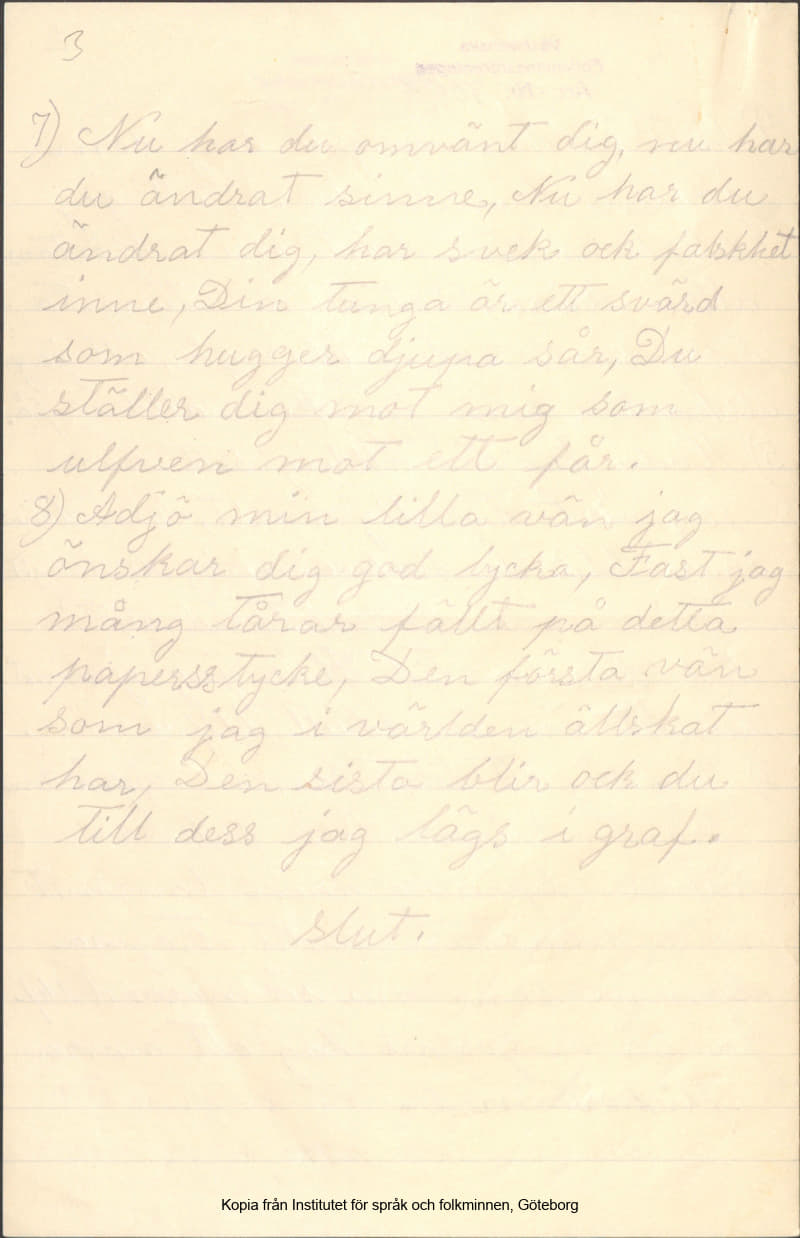 3
7) Nu har du omvänt dig, nu har
du ändrat sinne, Nu har du
ändrat dig, har svek ock falskhet
inne, Din tunga är ett svärd
som hugger djupa sår, Du
ställer dig mot mig som
ulfven mot ett får.
8) Adjö min lilla vän jag
önskar dig god lycka, Fast jag
mång tårar fällt på detta
papersstycke, Den första vän
som jag i världen ällskat
har, Den sista blir ock du
till dess jag lägs i graf.
slut.
Kopia från Institutet för språk och folkminnen, Göteborg